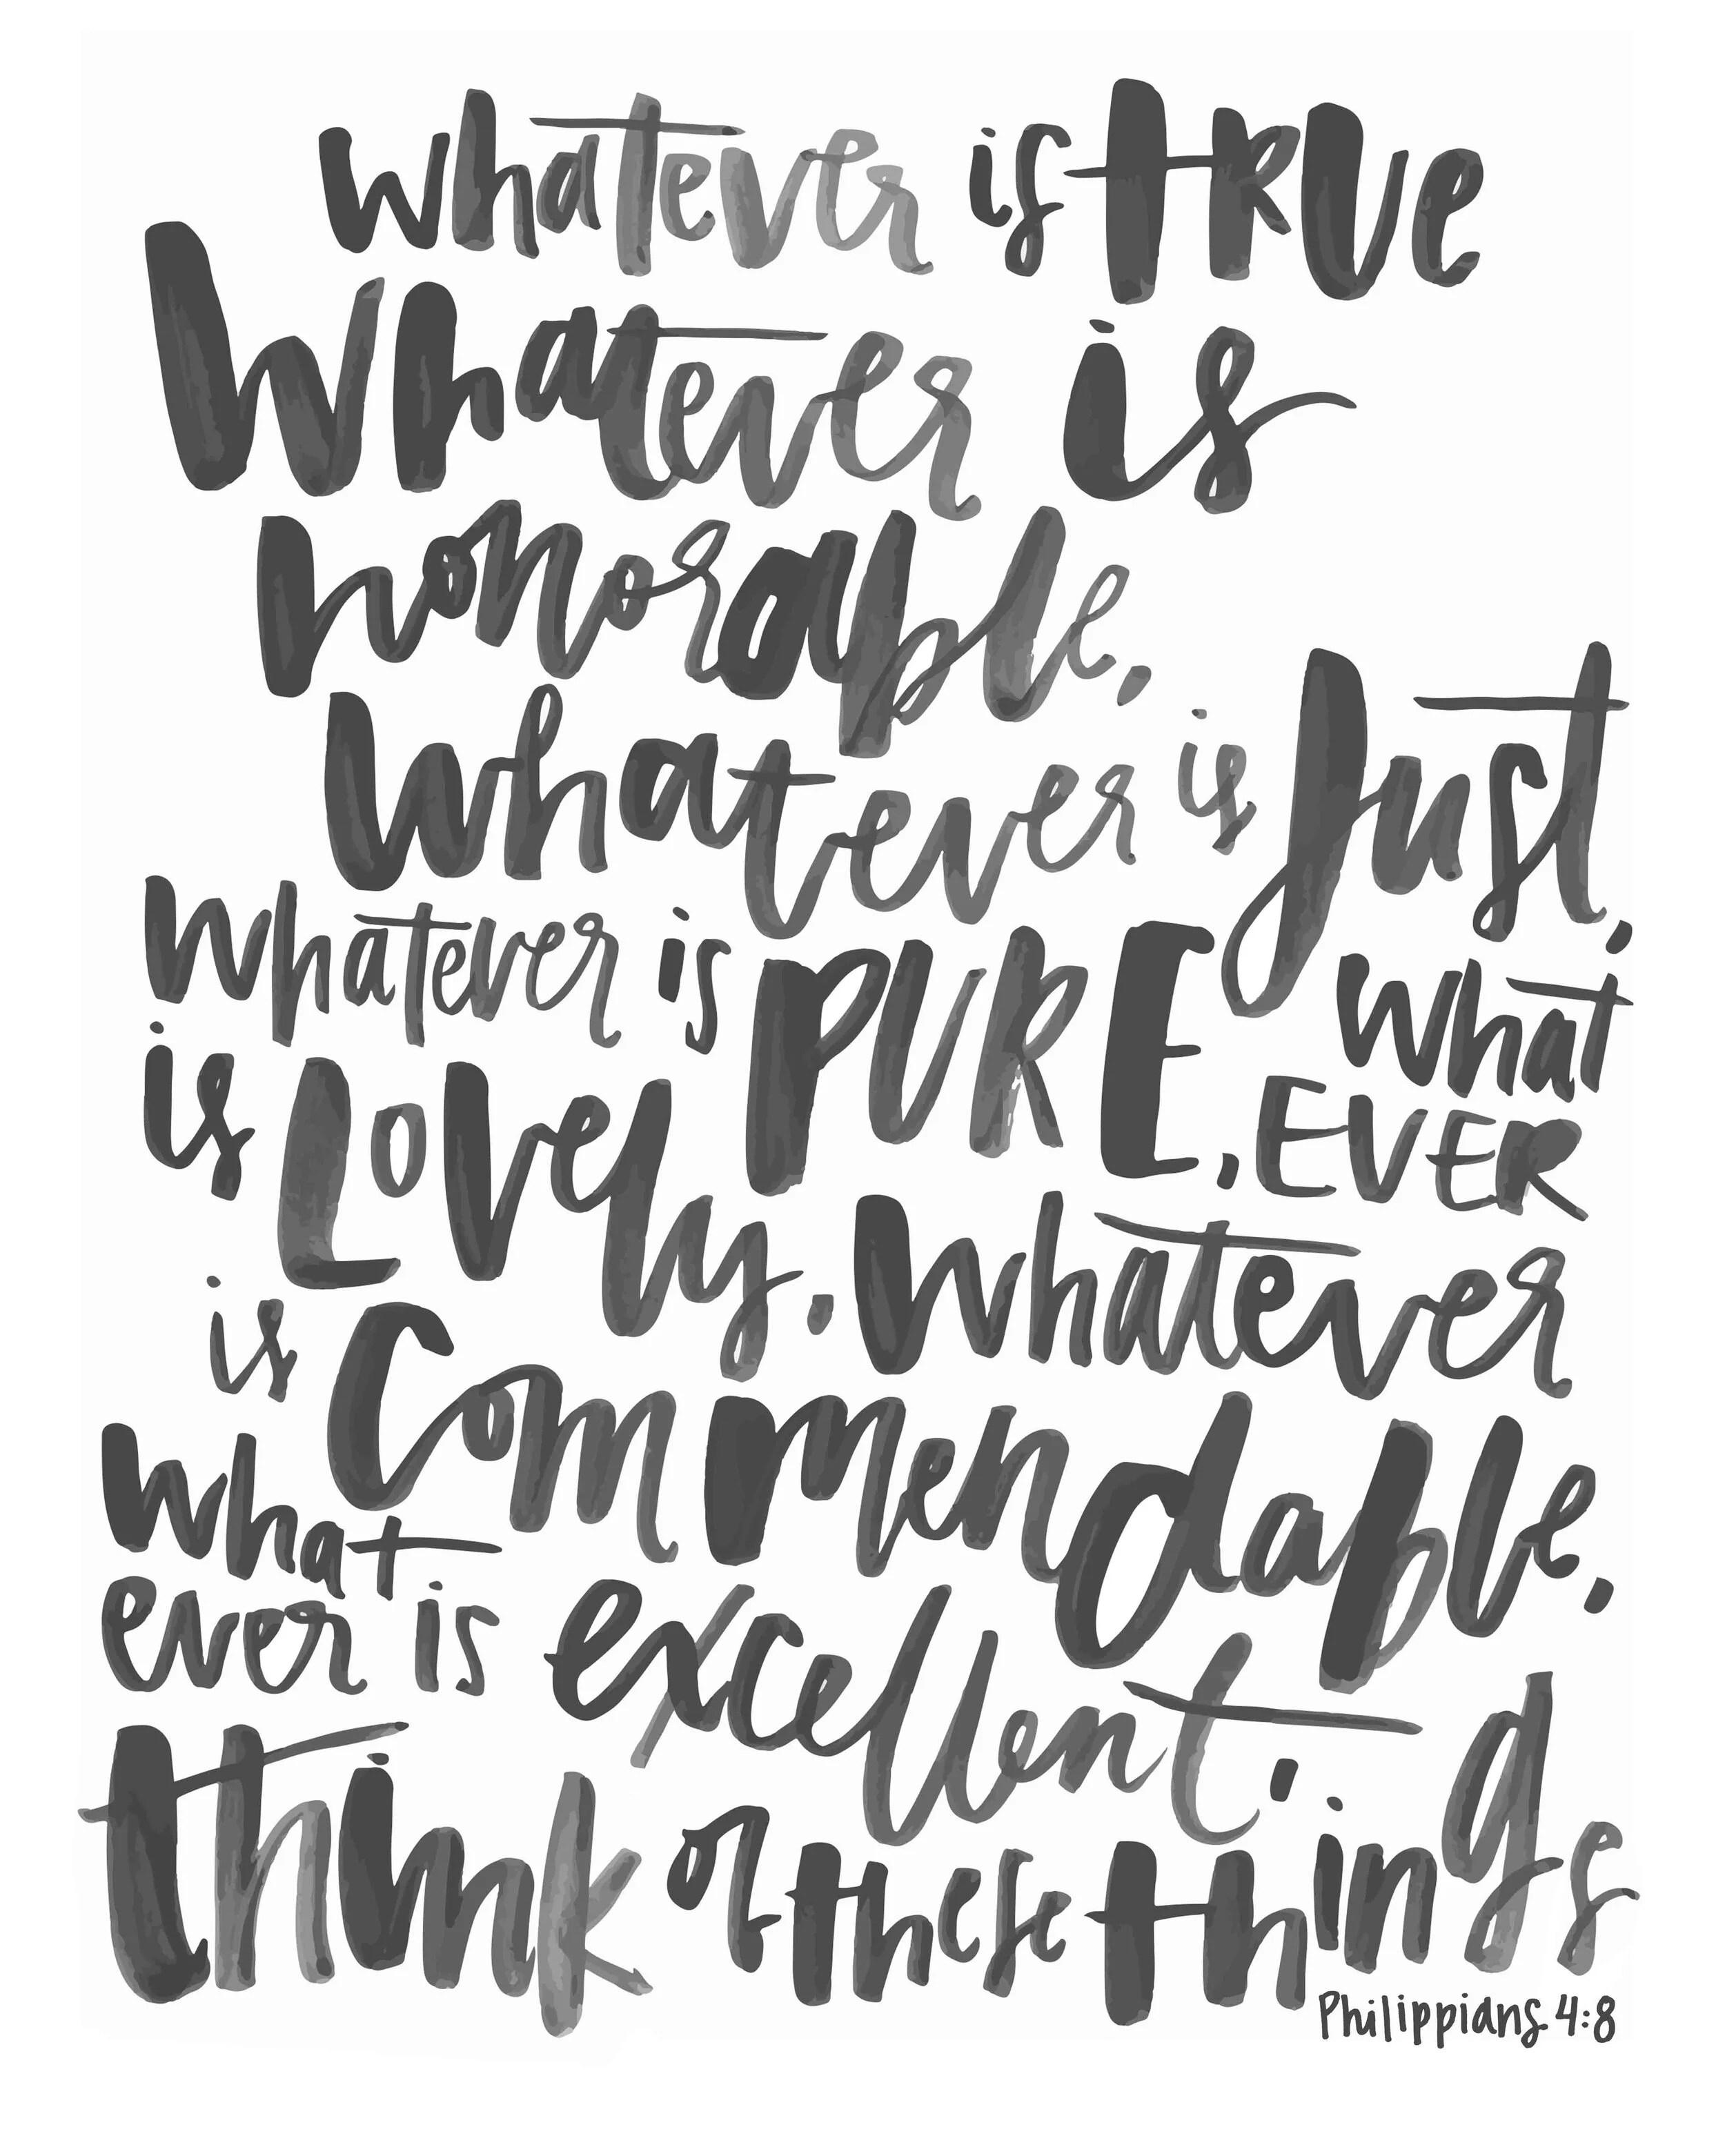 whatever is TRUe
Whatever is
honorable,
Whatever is Just,
whatever is PURE, what
EVER
is Lovely, Whatever
is Commendable,
what
ever is excellent,
think of these things
Philippians 4:8